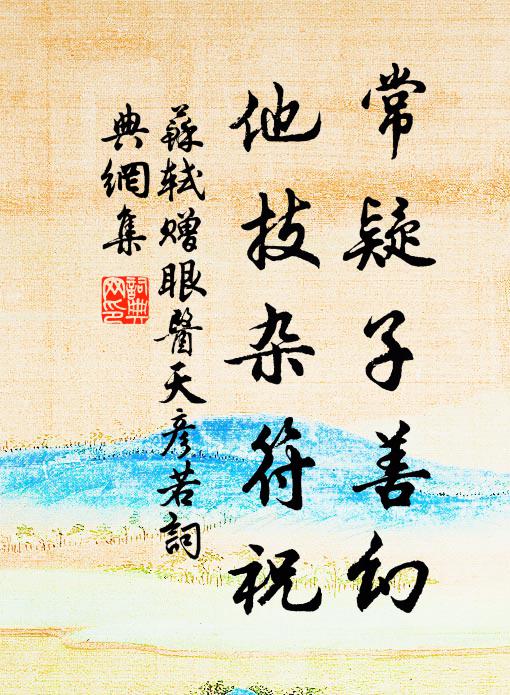 常疑子善幻
他技杂符祝
蘇軾赠眼醫天彦若詞
典網集
詞典
网印